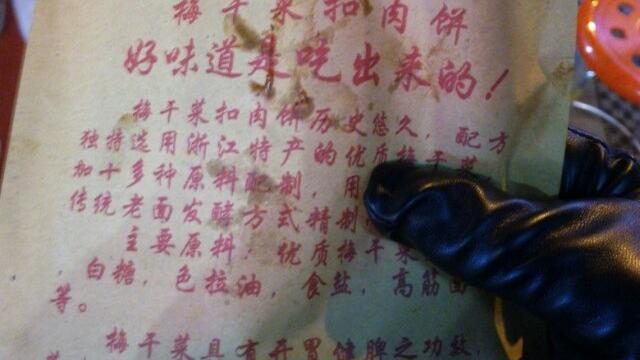 梅干菜扣肉饼
好味道是吃出来的！
梅干菜扣肉饼历史悠久，配方
独特选用浙江特产的优质梅干菜
加十多种原料配制，用
传统老面发酵方式精制
主要原料：优质梅干菜
，白糖，色拉油，食盐，高筋面
等。
梅干菜具有开胃健脾之功效，